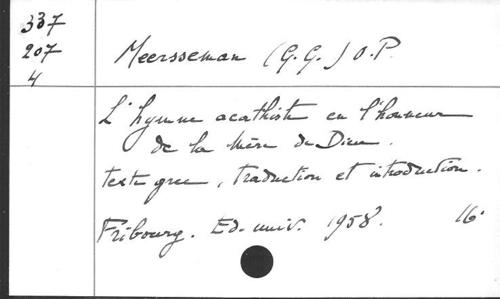 337
207
4
Meersseman (G.G.) O.P.
L'hymne acathiste en l'honneur
de la Mère de Dieu.
texte grec, traduction et introduction.
Fribourg. Ed. univ. 1958. 16°